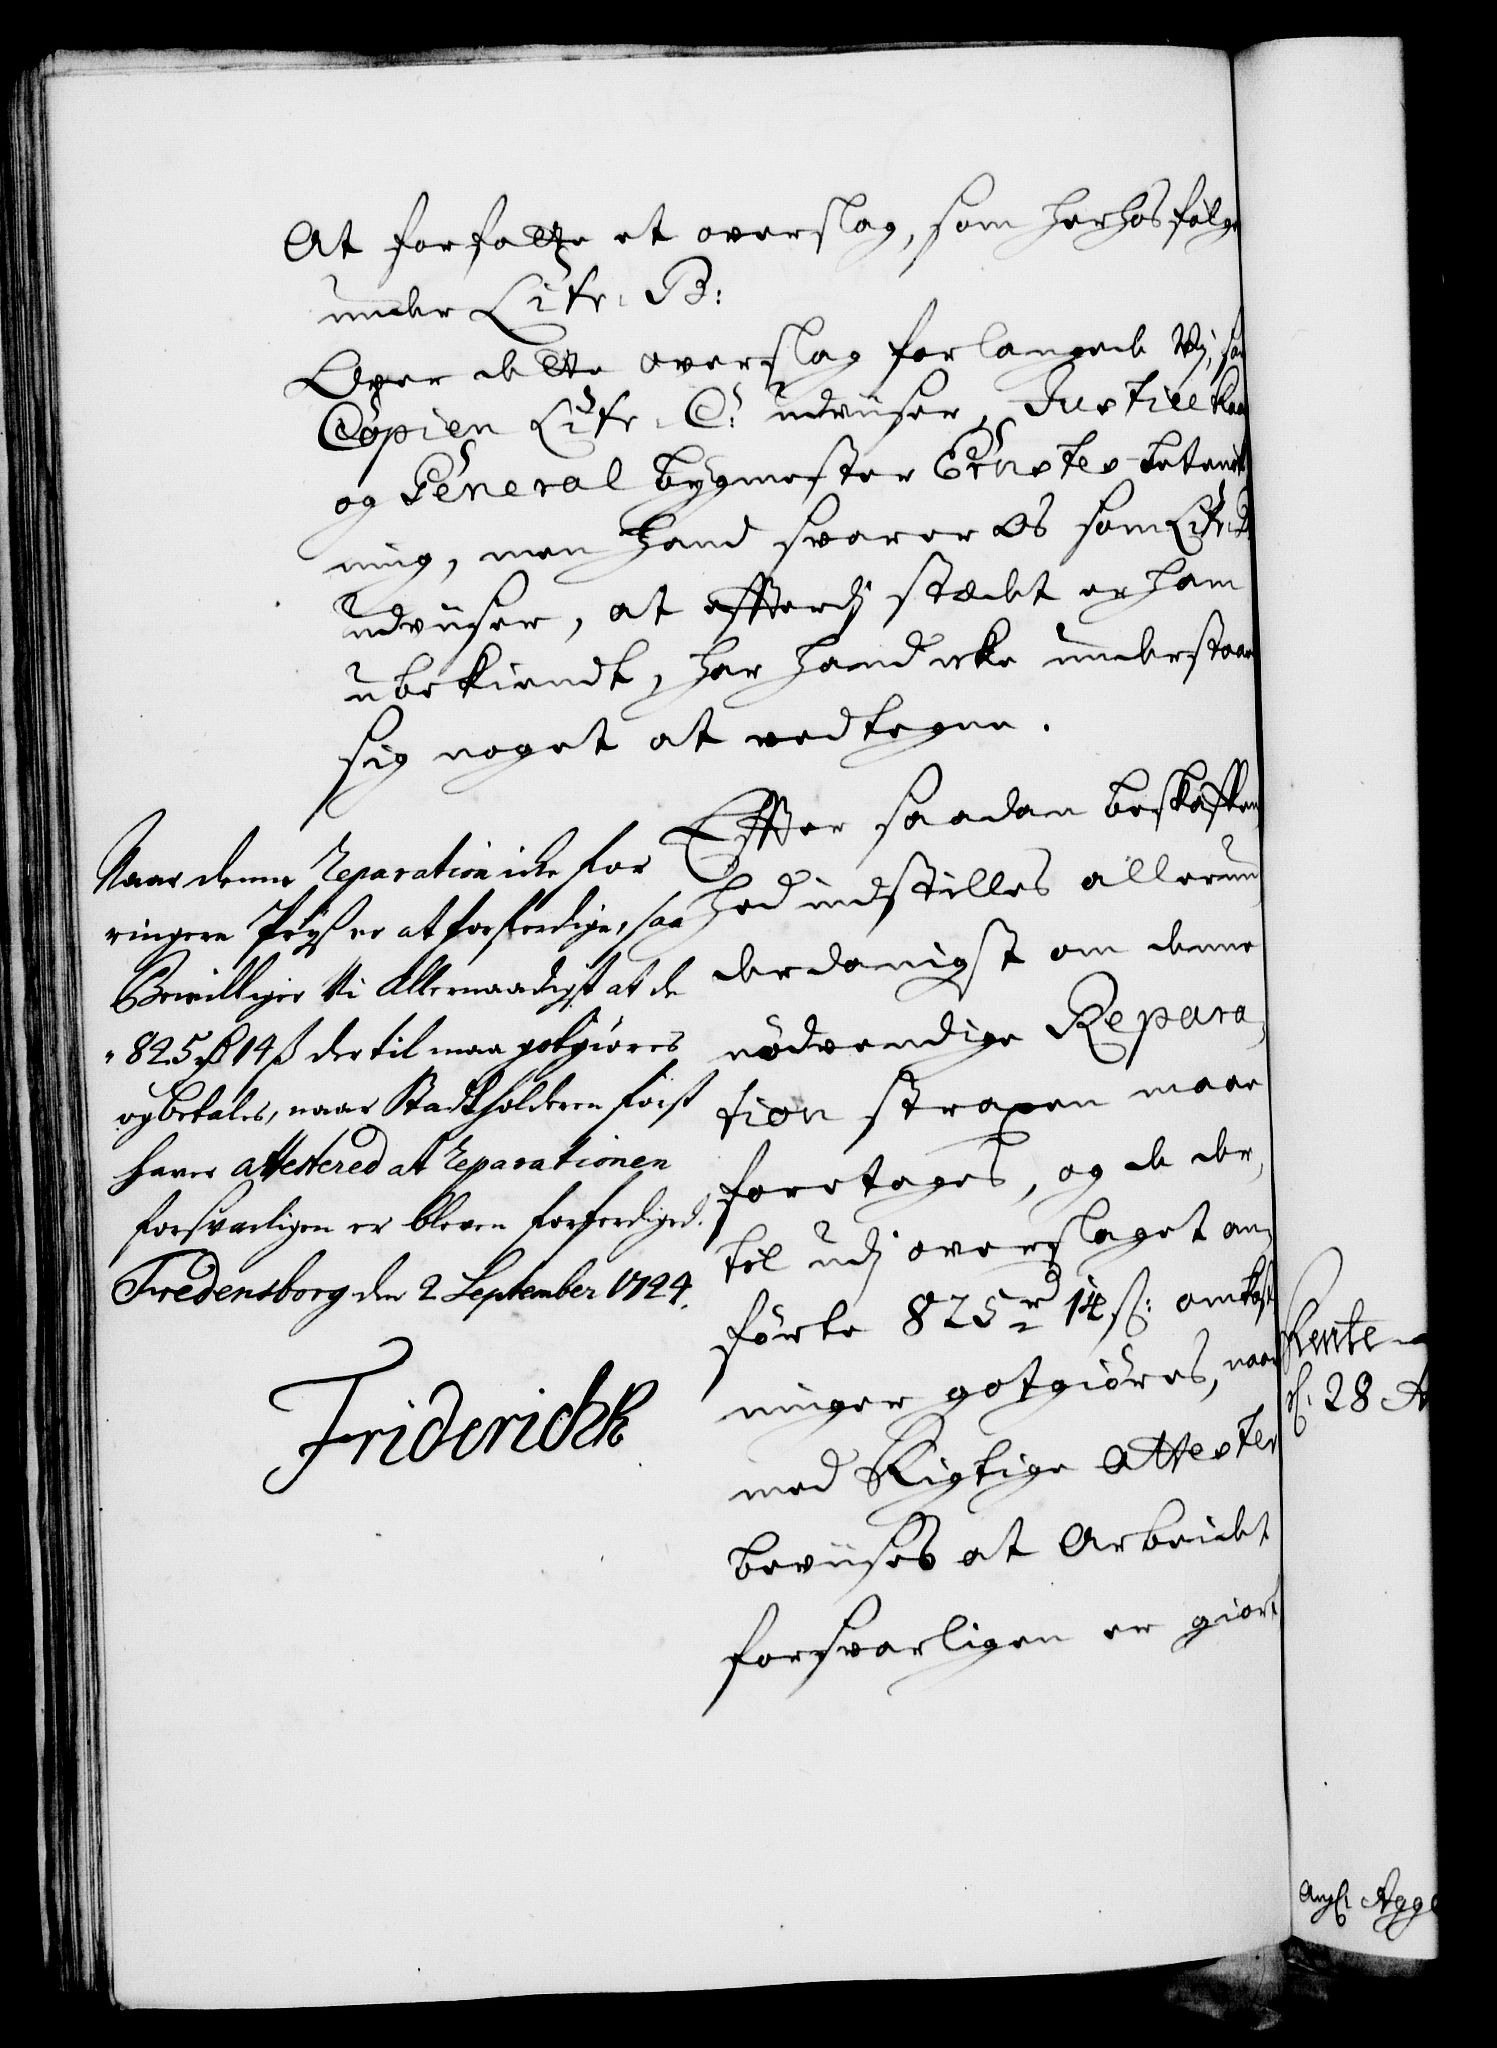 At forfatte et overslag, som herhos følge
under Litr. B:
Over dette overslag forlangede Vj, som
Copien Litr. C: udviiser, Justice Raa
og General bygmester Ernstes betenk
ning, men hand svarer Os som Litr: D
udviiser, at efftterdj stædet er ham
ubekiendt, har hand icke understaaet
sig noget at vedtegne.
Effter saadan beskaffen
hed indstilles allerun
derdanigst om denne
nødvendige Repara
tion straxen maae
foretages, og de der
til udj overslaget an
førte 825 rd 14 s: omkost
ninger godtgiøres, naar
med Rigtige Attester
beviises at Arbeidet
forsvarligen er giort
Naar denne Reparation icke for
ringere Priis er at forferdige, saa
Bevilliger Vi Allernaadigst at de
825 rd 14 ß dertil maa gotgiøres
og betales, naar Stadtholderen først
haver attestered at Reparationen
forsvarligen er bleven forferdiged.
Fredensborg den 2 September 1724.
Friderich R
Rente
d. 28 A
Aug: Agge